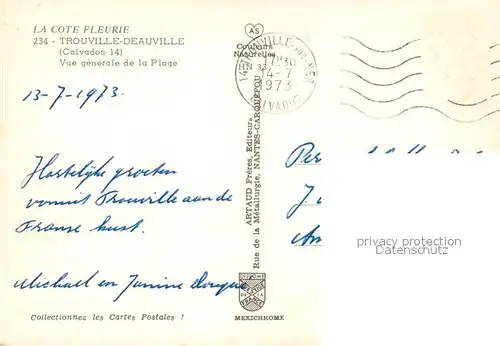 LA COTE FLEURIE
234 - TROUVILLE-DEAUVILLE
(Calvados-14)
Vue générale de la Plage
13-7-1973.
Hartelijke groeten
vanuit Trouville aan de
Franse kust.
Michael en Janine
Collectionnez les Cartes Postales !
AS
Couleurs
Naturelles
14 TROUVILLE-SUR-MER
17H30
14-7
1973
CALVADOS
ARTAUD Frères, Editeurs
Rue de la Métallurgie, NANTES-CARQUEFOU
MEXICHROME
J.
privacy protection
Datenschutz